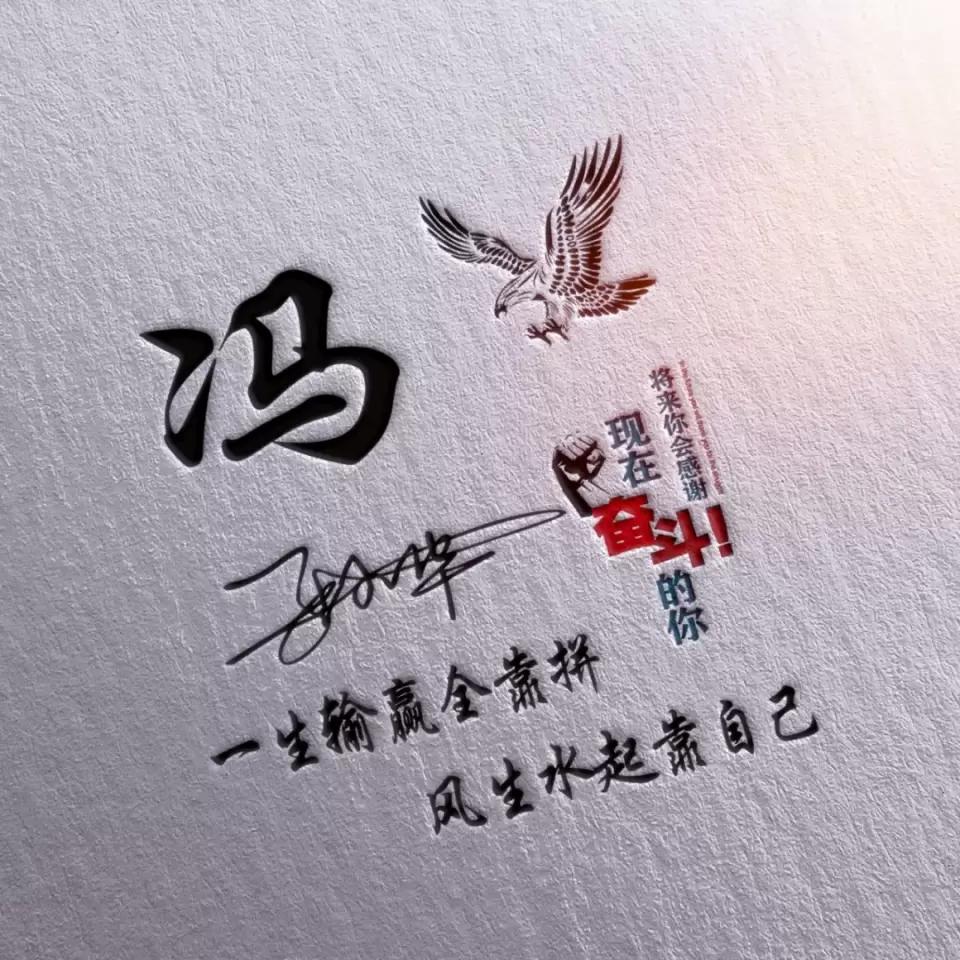 冯
将来你会感谢
现在
奋斗
的你
一生输赢全靠拼
风生水起靠自己